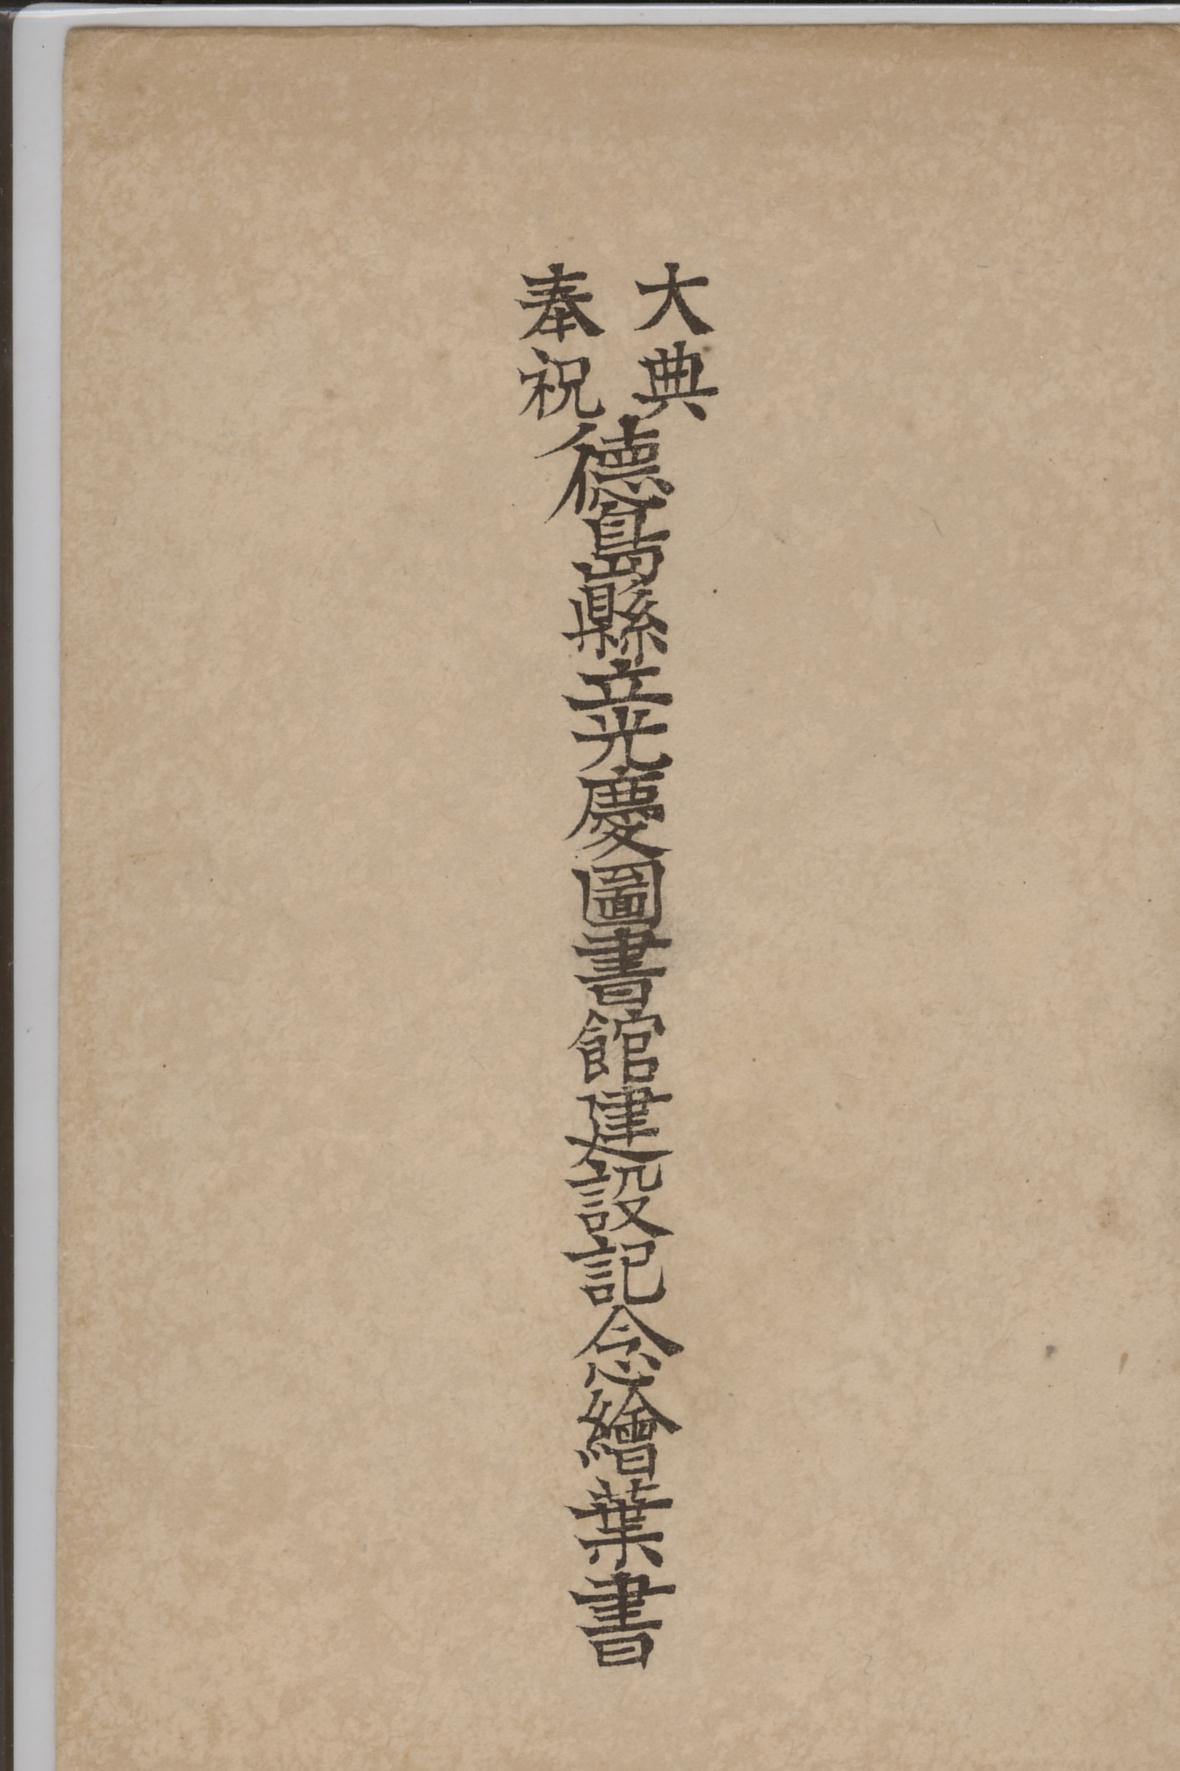 大典
奉祝
德島縣立光慶圖書館建設記念繪葉書